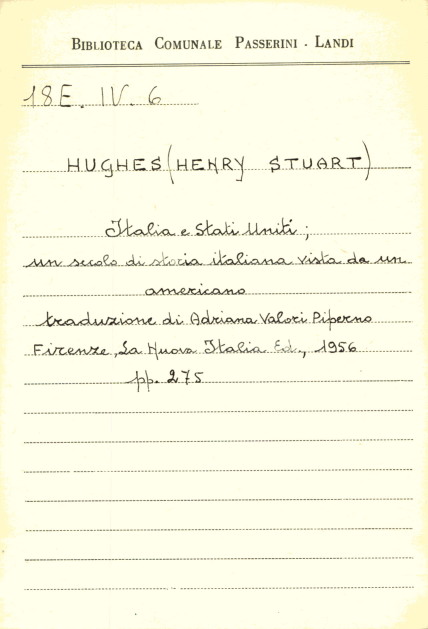 BIBLIOTECA COMUNALE PASSERINI - LANDI
18E. IV. 6
HUGHES (HENRY STUART)
Italia e Stati Uniti ;
un secolo di storia italiana vista da un
americano
traduzione di Adriana Valori Piperno
Firenze, La Nuova Italia Ed., 1956
pp. 275